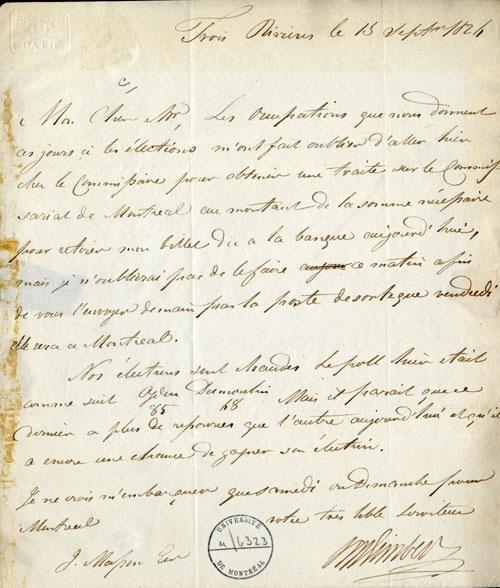 BATH
Trois Rivières le 15 Septbr 1824
Mon Cher Mr, Les occupations que nous donnent
ces jours ci les élections m'ont fait oublier d'aller hier
chez le Commissaire pour obtenir une traite sur le Commis
sariat de Montreal au montant de la somme nécessaire
pour retirer mon billet dû a la banque aujourd'hui,
mais je n'oublirai pas de le faire ce matin afin
de vous l'envoyer demain par la poste de sorte que vendredi
elle sera a Montreal.
Nos élections sont chaudes le poll hier etait
comme suit Ogden Dumoulin Mais il parait que ce
85 68
dernier a plus de ressources que l'autre aujourd'hui et qu'il
a encore une chance de gagner son élection.
Je ne crois m'embarquer que samedi ou Dimanche pour
Montreal votre très hble Serviteur
J. Masson Ecr
UNIVERSITÉ
6323
DE MONTRÉAL